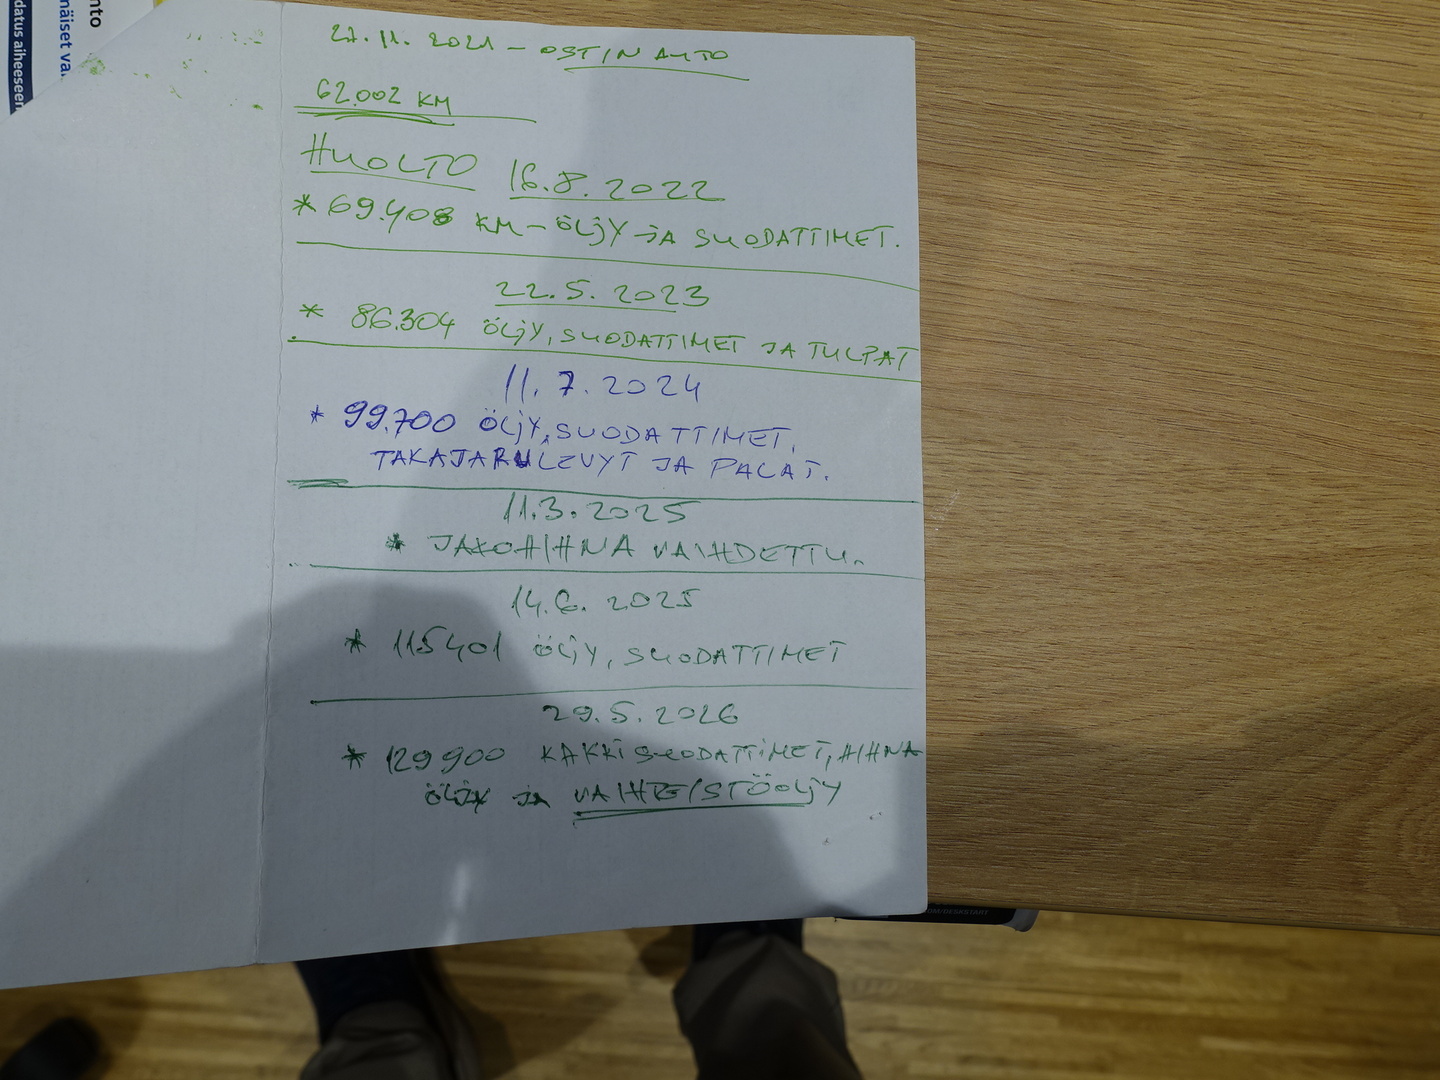 nto
näiset va
datus aiheeseen
27.11.2021 - OSTIN AUTO
62.002 KM
HUOLTO 16.8.2022
* 69.408 KM - ÖLJY JA SUODATTIMET.
22.5.2023
* 86.304 ÖLJY, SUODATTIMET JA TULPAT
11.7.2024
* 99.700 ÖLJY, SUODATTIMET,
TAKAJARRULEVYT JA PALAT.
11.3.2025
* JAKOHIHNA VAIHDETTU.
14.6.2025
* 115401 ÖLJY, SUODATTIMET
29.5.2026
* 129900 KAKKI SUODATTIMET, HIHNA
ÖLJY JA VAIHTEISTÖÖLJY
OM/DESKSTART